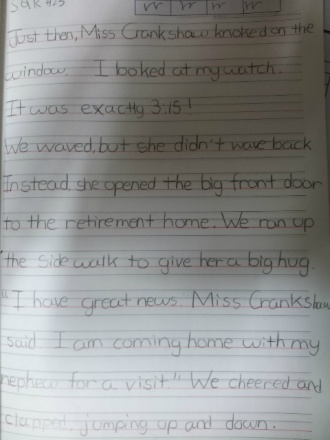 Just then, Miss Crankshaw knoked on the
window. I looked at my watch.
It was exactly 3:15!
We waved, but she didn't wave back
Instead, she opened the big front door
to the retirement home. We ran up
the sidewalk to give her a big hug.
"I have great news. Miss Crankshaw
said. I am coming home with my
nephew for a visit." We cheered and
clapped, jumping up and down.